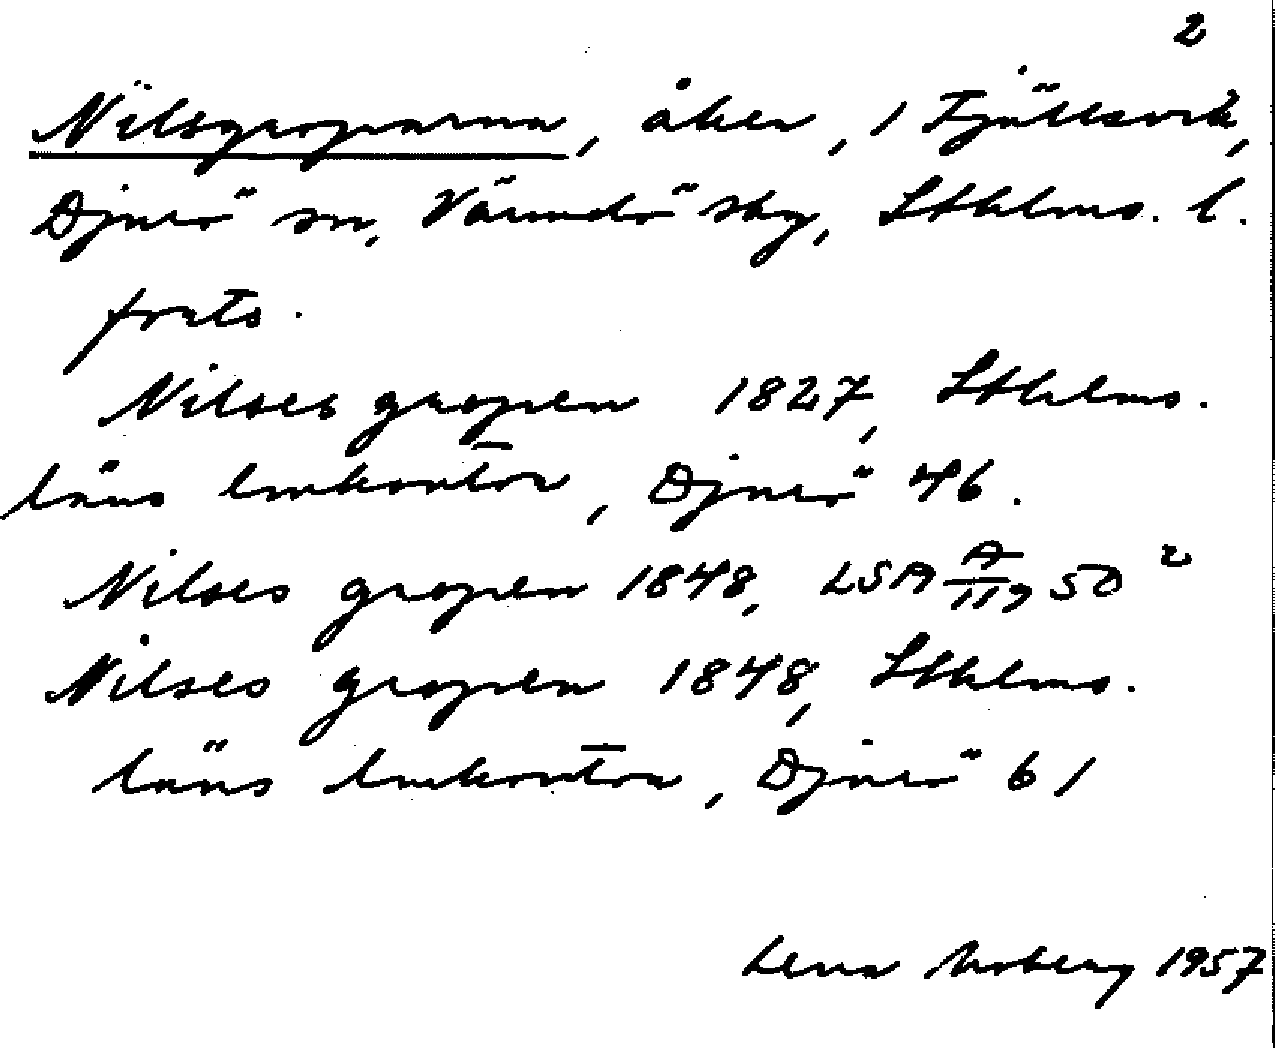 2
Nilsgroparna, åker, 1 Fjällsvik,
Djurö sn, Värmdö skg, Sthlms. l.
forts.
Nilses gropen 1827, Sthlms.
läns lmkontor, Djurö 46.
Nilses gropen 1848, LSA A/119 50²
Nilses gropen 1848, Sthlms.
läns lmkontor, Djurö 61
Lena Moberg 1957